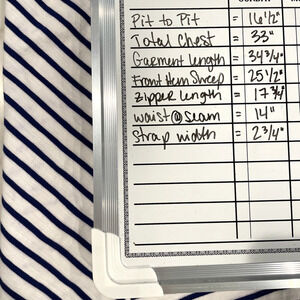 Pit to Pit = 16 1/2"
Total Chest = 33"
Garment length = 34 3/4"
Front Hem Sweep = 25 1/2"
Zipper length = 17 3/4"
waist @ seam = 14"
Strap width = 2 3/4"